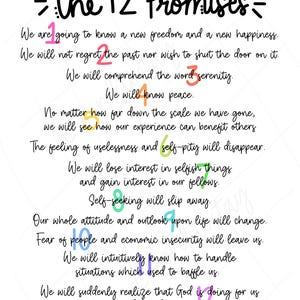 the 12 Promises
1 We are going to know a new freedom and a new happiness.
2 We will not regret the past nor wish to shut the door on it.
3 We will comprehend the word serenity.
4 We will know peace.
5 No matter how far down the scale we have gone,
we will see how our experience can benefit others
6 The feeling of uselessness and self-pity will disappear.
7 We will lose interest in selfish things
and gain interest in our fellows.
8 Self-seeking will slip away.
9 Our whole attitude and outlook upon life will change.
10 Fear of people and economic insecurity will leave us.
11 We will intuitively know how to handle
situations which used to baffle us.
12 We will suddenly realize that God is doing for us